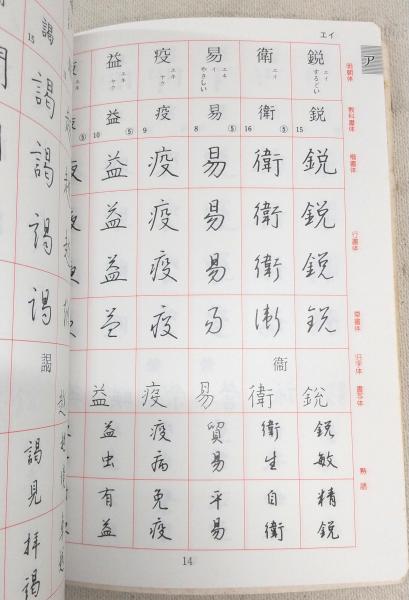 エイ
ア
明朝体
教科書体
楷書体
行書体
草書体
旧字体
書写体
熟語
鋭
エイ
するどい
鋭
15
鋭
鋭
鋭
鋭
鋭
鋭敏
精鋭
衛
エイ
衛
16
⑤
衛
衛
衛
衛
衞
衛
衛生
自衛
易
エキ
イ
やさしい
易
8
⑤
易
易
易
易
易
貿易
平易
疫
エキ
ヤク
疫
9
疫
疫
疫
疫
疫
疫病
免疫
益
エキ
ヤク
益
10
⑤
益
益
益
益
益
益虫
有益
14
15
謁
謁
謁
謁
謁
謁
謁見
拝謁